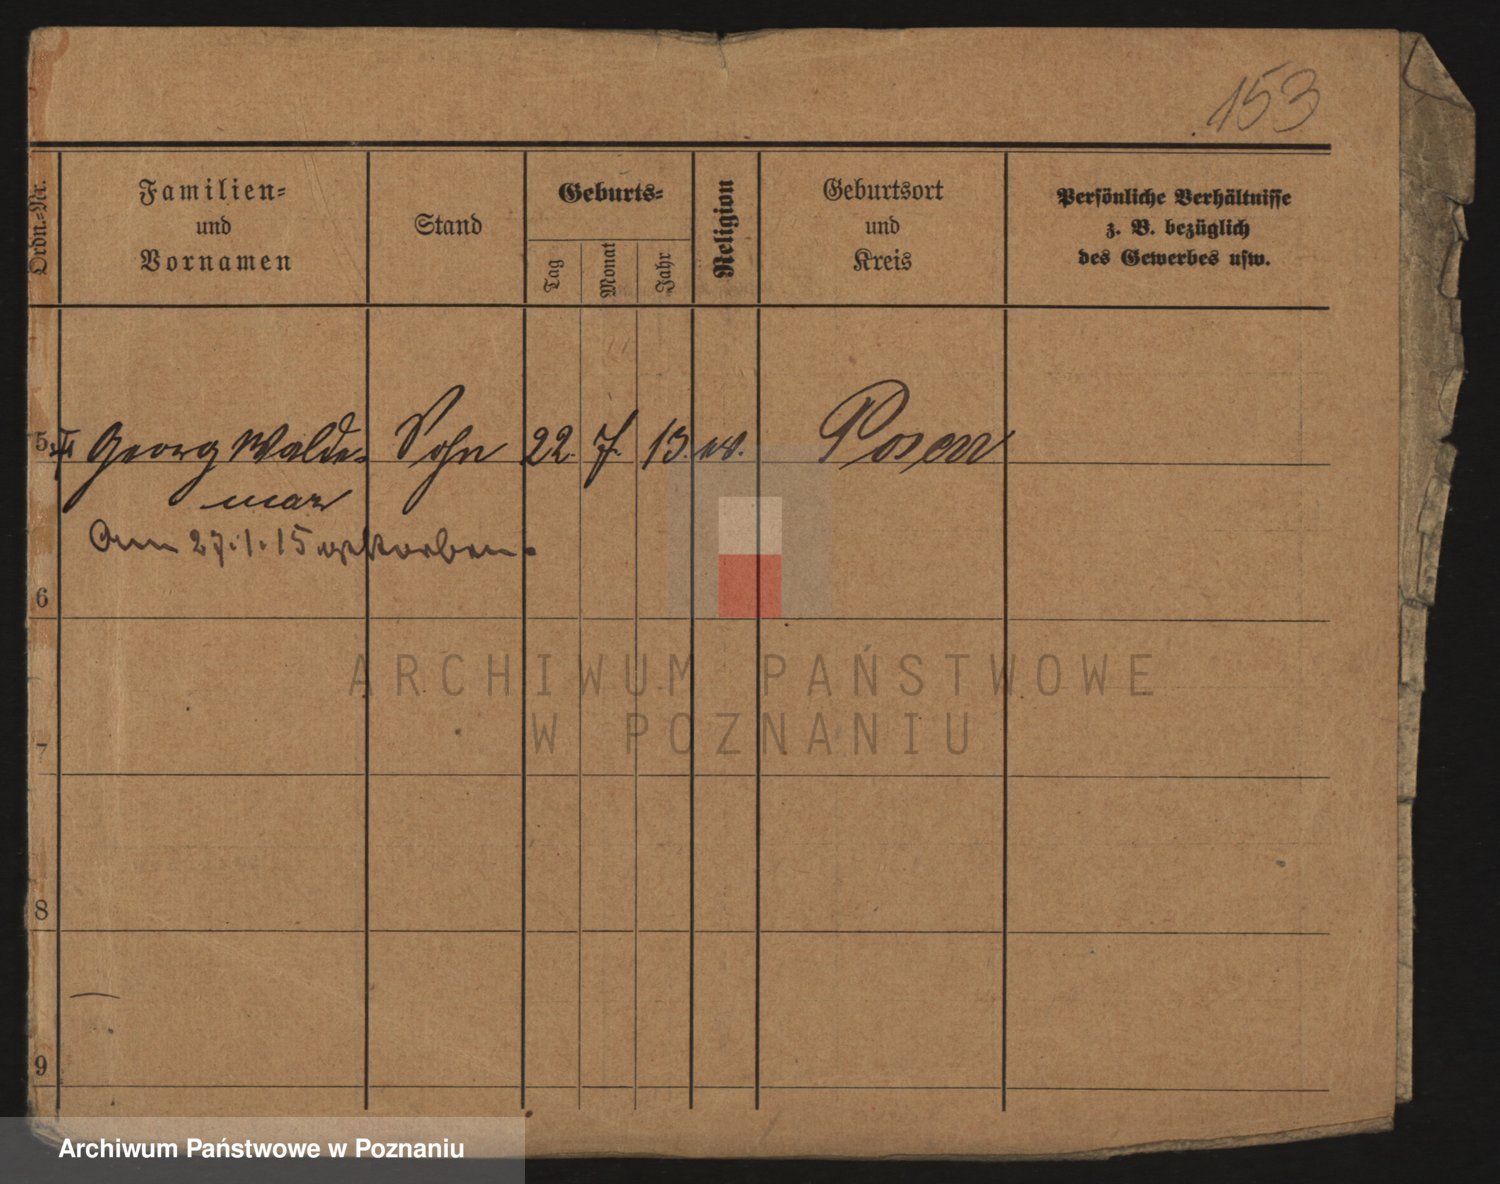 153
Ordn.=Nr.
Familien=
und
Vornamen
Stand
Geburts=
Tag
Monat
Jahr
Religion
Geburtsort
und
Kreis
Persönliche Verhältnisse
z. B. bezüglich
des Gewerbes usw.
5. Georg Walde- Sohn 22. 7. 13. ev. Posen
mar
Am 27.1.15 verstorben.
6
7
8
9
ARCHIWUM PAŃSTWOWE
W POZNANIU
Archiwum Państwowe w Poznaniu